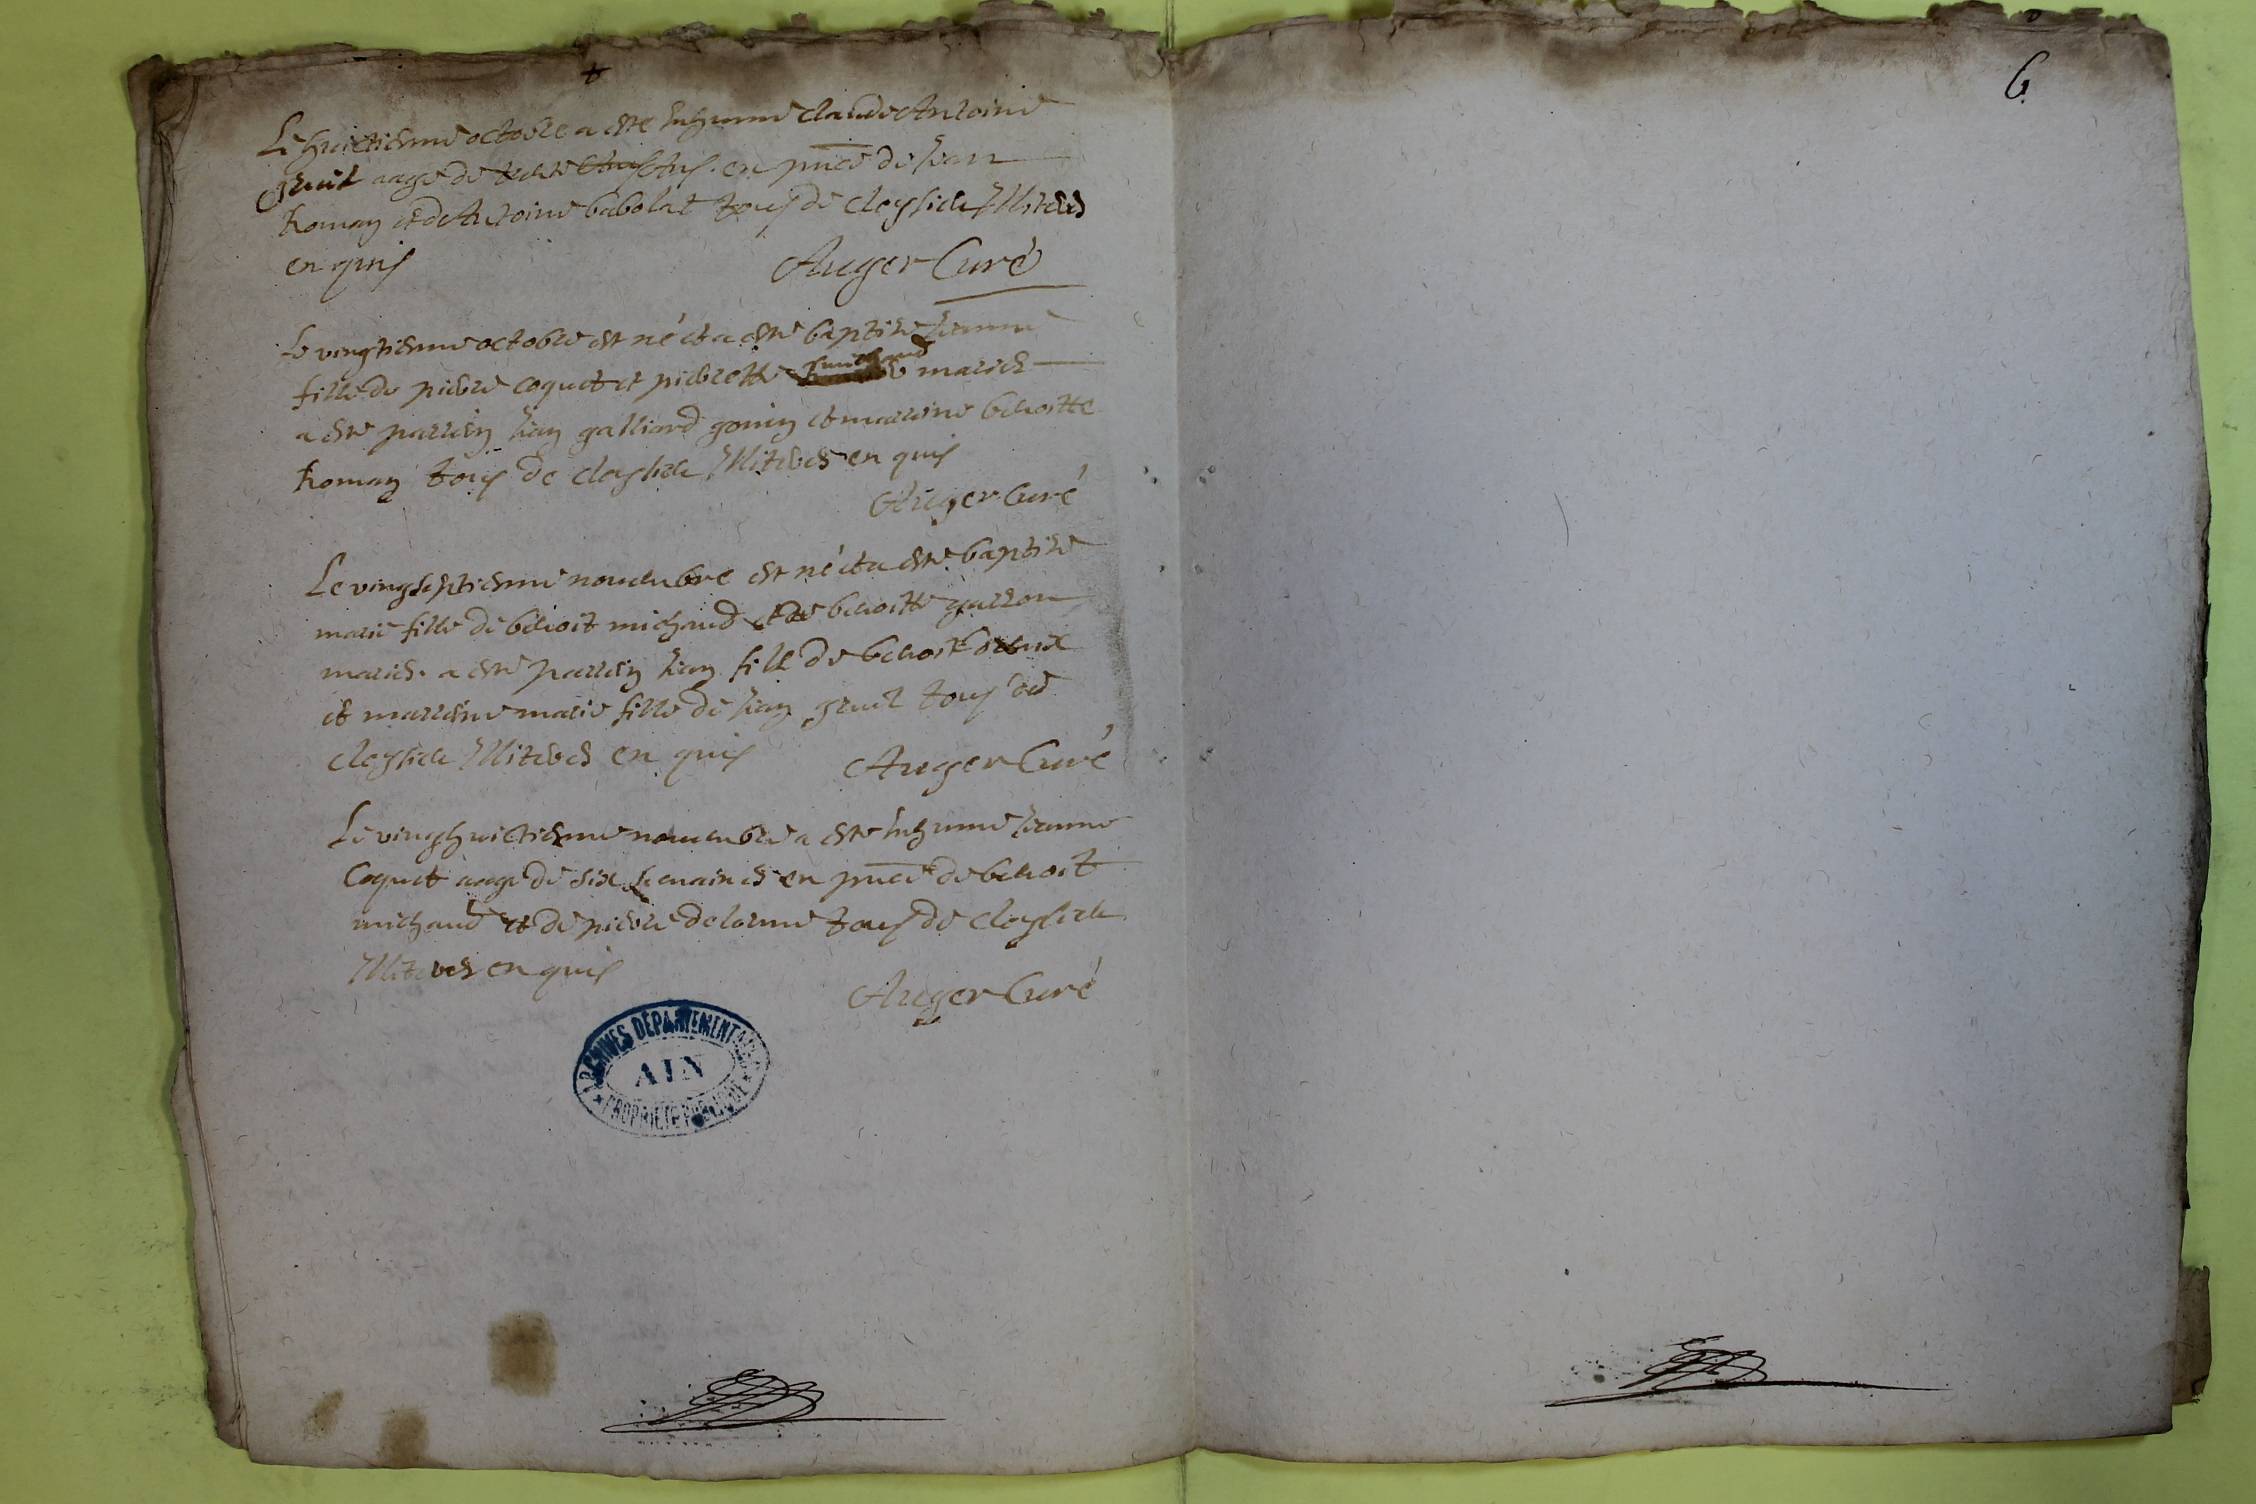 Le huictiesme octobre a este inhumé claude Antoine
gruel aagé de trente ans en pnce de Jean
Roman et de Antoine babolat tous de cleyssieu Illiteres
enquis
Auger Curé
Le vingtiesme octobre est né et a esté baptise Jeanne
fille de pierre coquet et pierrette michaud mariés
a esté parrein Jean galliard gonin et marrine benoitte
Roman tous de cleyssieu Illiteres enquis
Auger Curé
Le vingseptiesme novembre est né et a esté baptise
marie fille de benoit michaud et de benoitte
mariés a esté parrein Jean fils de benoit
et marreine marie fille de Jean gruel tous de
cleyssieu Illiteres enquis
Auger Curé
Le vinghuictiesme novembre a esté inhumé Jeanne
Coquet aagé de six semaines en pnce de benoit
michaud et de pierre delorme tous de cleyssieu
Illiteres enquis
Auger Curé
ARCHIVES DÉPARTEMENTALES
AIN
PROPRIÉTÉ PUBLIQUE
6